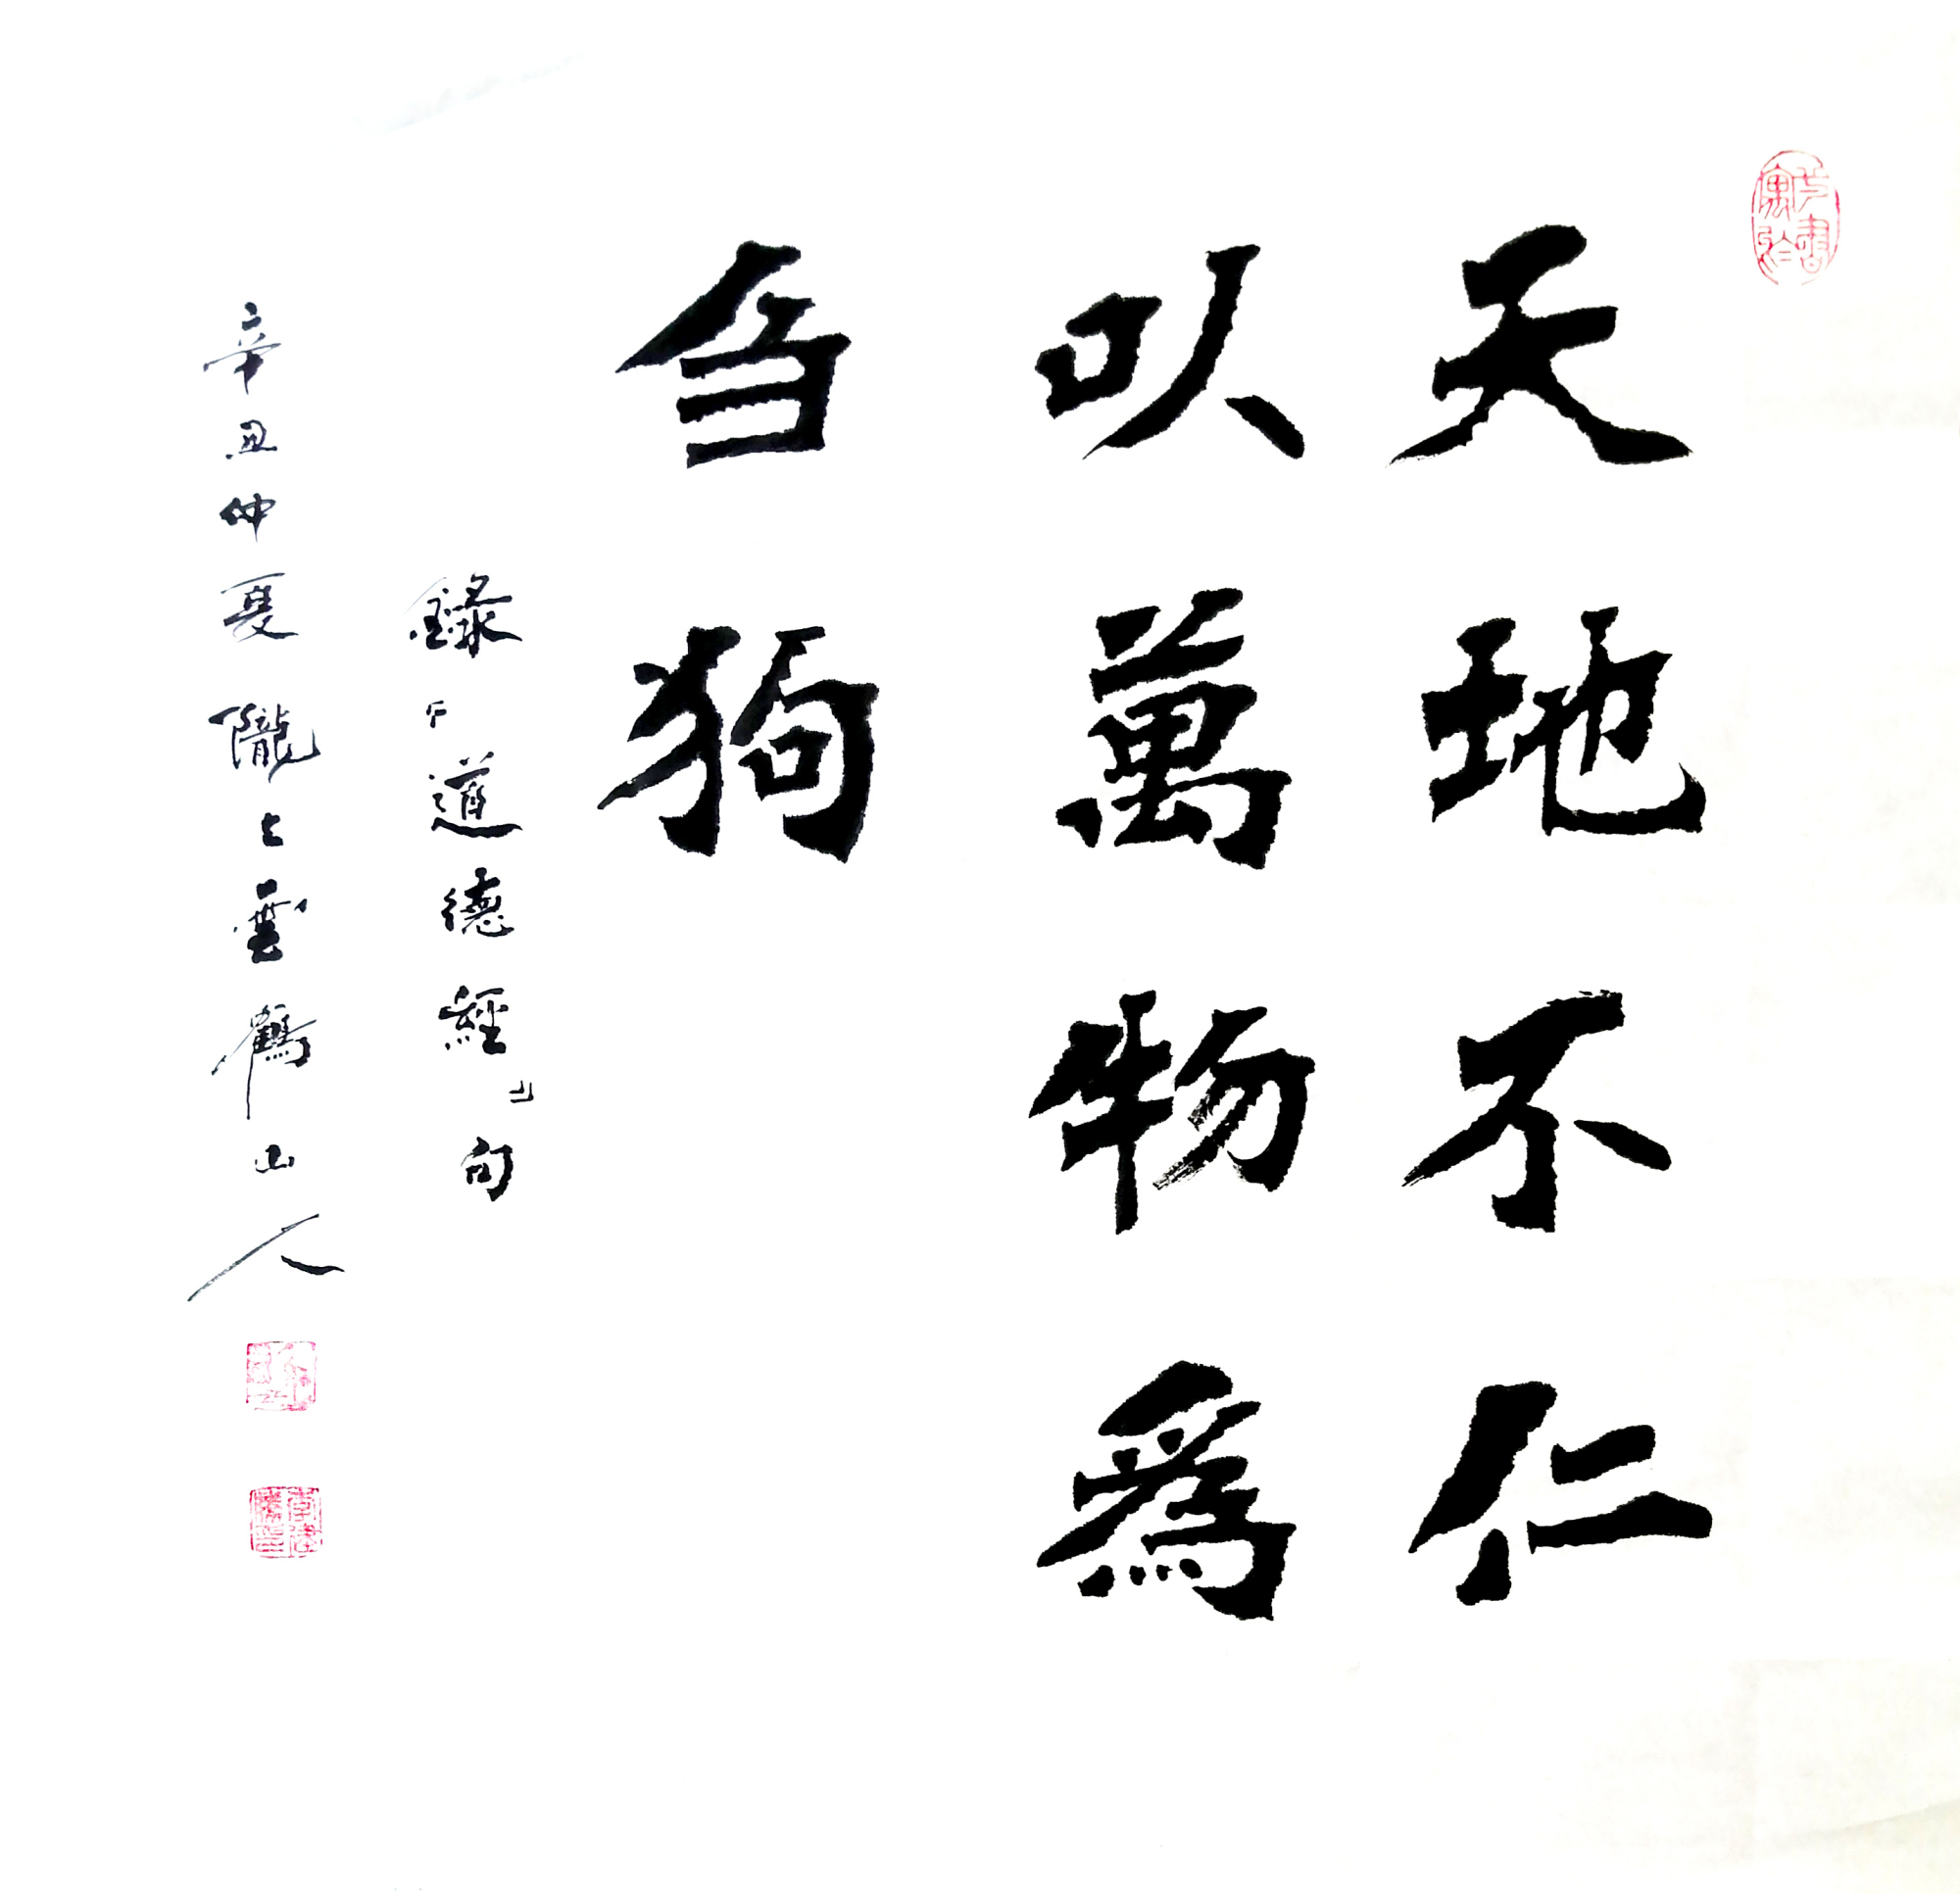 天地不仁
以萬物爲
刍狗
錄『道德經』句
辛丑仲夏隴上雲鶴山人